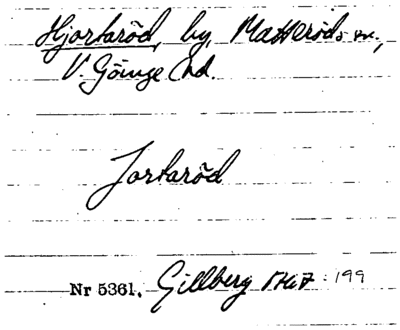 Hjortaröd, by, Matteröds sn.,
V. Göinge hd.
Jortaröd
Nr 5361. Gillberg 1767: 199